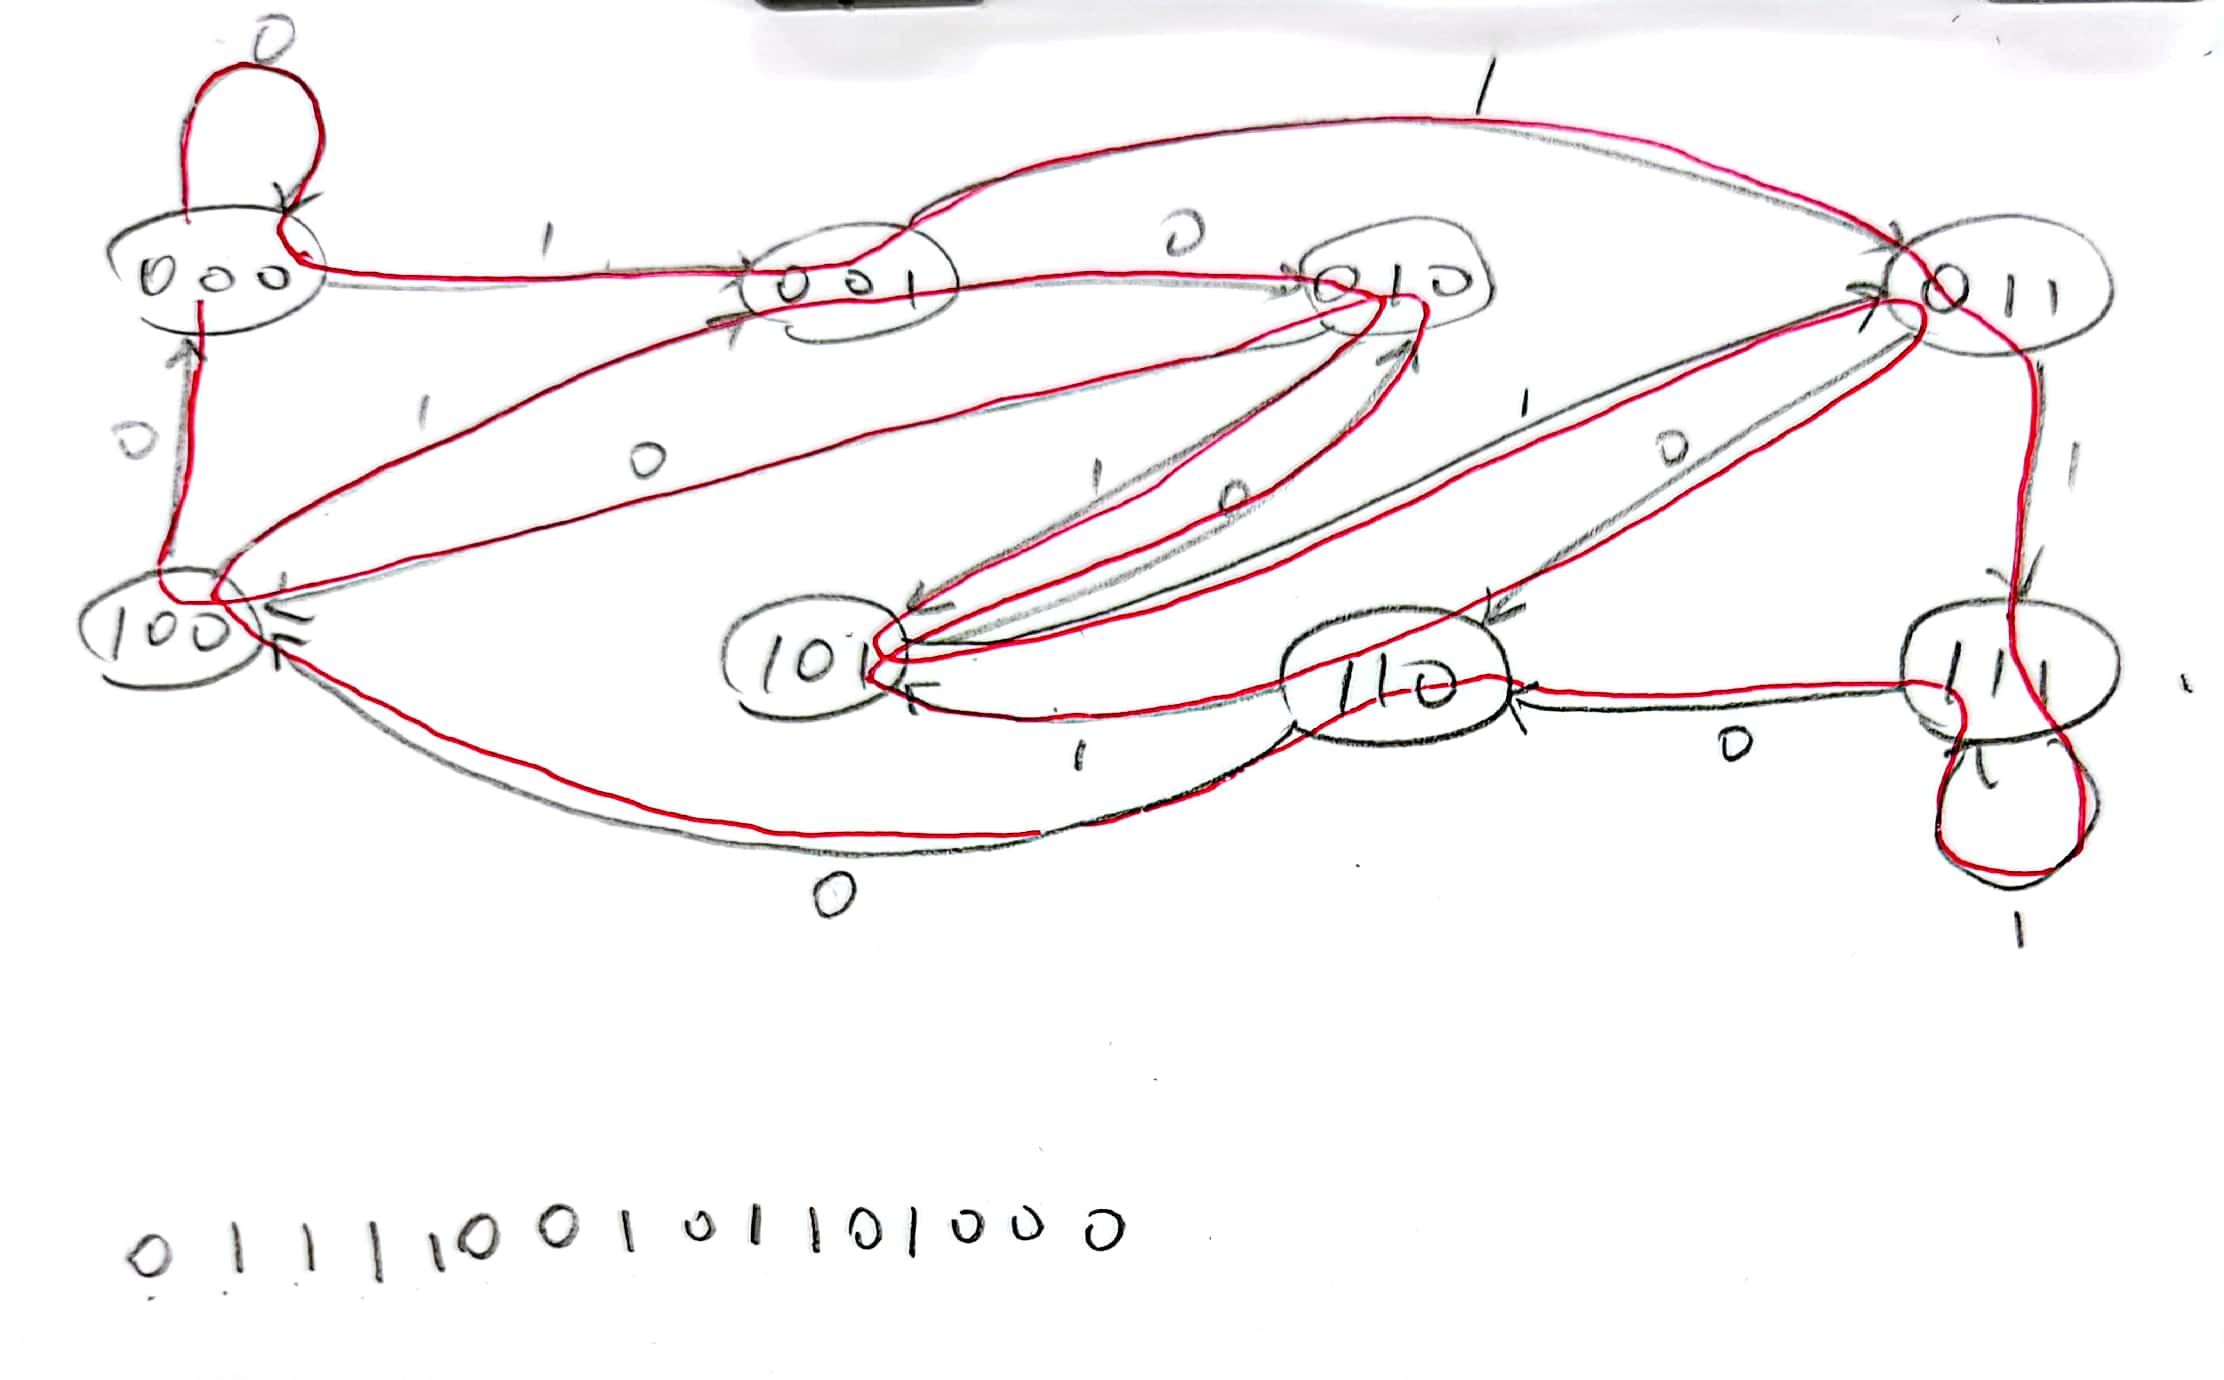 0
1
1 0
000 001 010 011
1
0 1 0 1 0 1 0 1
100 101 110 111
1 0
0 1
0 1 1 1 1 0 0 1 0 1 1 0 1 0 0 0